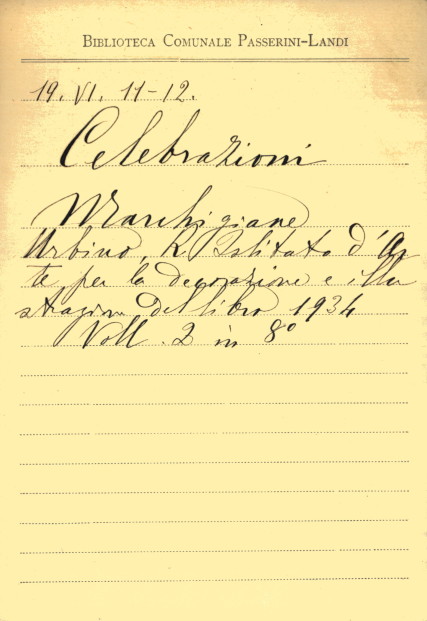 BIBLIOTECA COMUNALE PASSERINI-LANDI
19. VI. 11-12.
Celebrazioni
Marchigiane
Urbino, R. Istituto d'Ar
te per la decorazione e illu
strazione del libro 1934
Voll. 2 in 8º